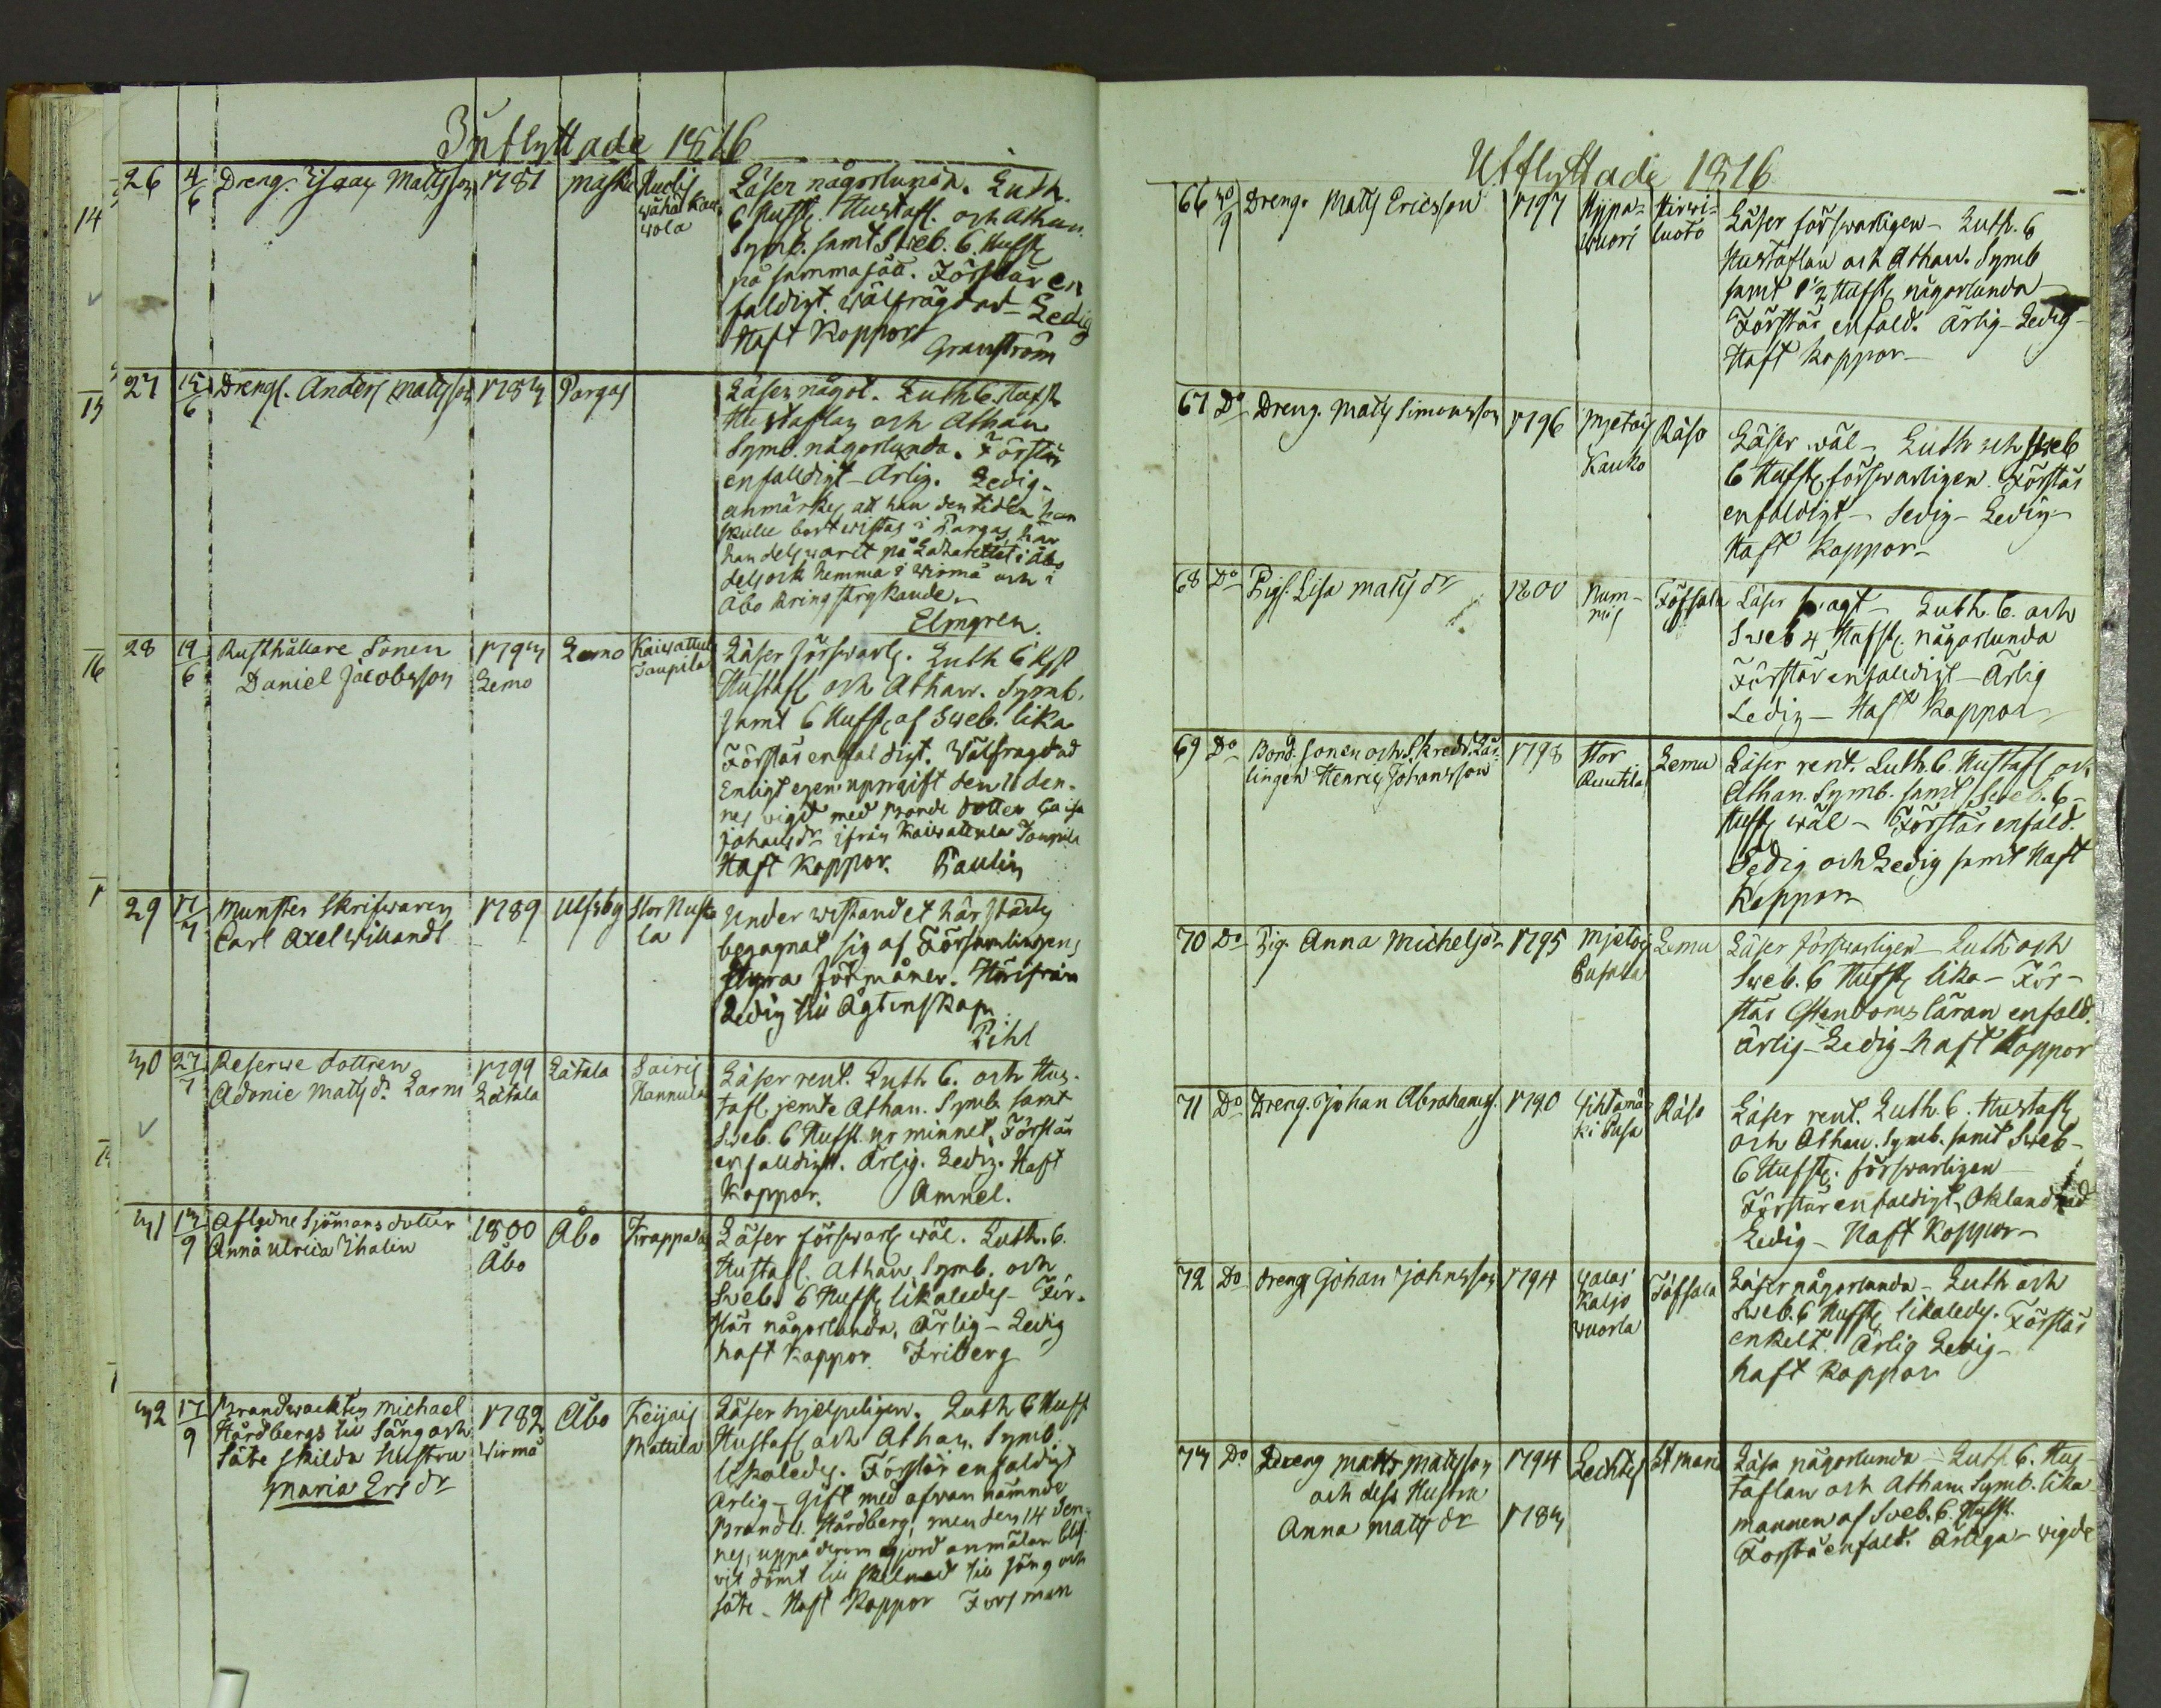 Inflyttade 1816
26 4/6 Dreng. Isaac Mattsson 1781 Masku
Wähä Kau
wola
Läser någorlunda. Luth.
6 Hufst. Hustafl. och Athan.
Symb. samt Sweb. 6 Hufst
på samma sätt. Förstår en
faldigt. Wälfrägdad - Ledig
Haft Koppor
Granström
27 15/6 Drengs. Anders Mattsson 1783 Pargas
Läser någol. Luth 6 Hufst
Hustaflan och Athan.
Symb. någorlunda. Förstår
enfalldigt - Ärlig. Ledig -
anmärkes att han den tiden han
skulle bort wistas i Pargas, har
han dels warit på Lazarettet i Åbo
dels ock hemma i Wirmo och i
Åbo kringstrykande
Elmgren.
28 19/6 Rusthållare Sonen
Daniel Jacobsson
1793
Lemo
Lemo
Kaiwattula
Taupila
Läser förswarl. Luth 6 Hfst
Hustafl och Athan. Symb.
samt 6 Hufst af Sweb. lika
Förstår enfaldigt. Wälfragdad
Enligt egen uppgift den 11 den-
nes wigd med Bonde dotter Caisa
Johansdr ifrån Kaiwattula Taupila
Haft koppor. Paulin
29 17/7 Munster Skrifwaren
Carl Axel Willandt
1789 Ulfsby Stor Huht
la
Under wistandet här städes
begagnat sig af Församlingens
dyra förmåner. Härifrån
Ledig till Ägtenskap
Pihl
30 27/7 Reserwe dottren
Adonie Matts d. Larm
1799
Låtala
Låtala
Sairis
Hannula
Läser rent. Luth 6. och Hus-
tafl jemte Athan. Symb. samt
Sweb. 6 Hufst. ur minnet. Förstår
enfalldigt. Ärlig. Ledig. Haft
Koppor. Amnel.
31 13/9 Aflydne Sjömans dotter
Anna Ulrica Thalin
1800
Åbo
Åbo
Krappala
Läser förswarl wäl. Luth. 6.
Hustafl. Athan. Symb. och
Sweb. 6 Hufst likaledes - För-
står någorlunda, Ärlig - Ledig
haft koppor. Friberg
32 17/9 Brandwackten Michael
Hårdbergs till Säng och
Säte skilda Hustru
Maria Ers dr
1782
Wirmo
Åbo
Keijais
Mattila
Läser hjelpeligen. Luth 6 Hufst
Hustafl och Athan. Symb
likaledes. Förstår enfaldigt
Ärlig - Gift med ofwan nämnde
Brandv. Hårdberg, men den 14 den-
nes, uppå derom gjord anmälan blif
wit dömt till skilnad till säng och
säte. Haft Koppor Forsman
14
15
16
Utflyttade 1816
66 Dreng. Matts Ericsson 1797
Hypa-
wuori
Hirwi-
luoto
Läser förswarligen - Luth. 6
Hustaflan och Athan. Symb
samt 1 1/2 Hufst. någorlunda
Förstår enfald. Ärlig - Ledig -
Haft koppor -
67 Do Dreng. Matts Simonsson 1796
Mjetois
Kauko
Räso
Läser wäl - Luth och Sweb
6 Hufst. förswarligen Förstår
enfaldigt - Sedig - Ledig -
Haft koppor -
68 Do Pigs. Lisa Matts dr 1800
Num-
mis
Töfsala
Läser swagt - Luth. 6. och
Sweb 4 Hufst. någorlunda
Förstår enfalldigt - Ärlig
Ledig - Haft koppor
69 Do Bond. sonen och Skredd. Lär-
lingen Henric Johansson
1798
Stor
Ruutila
Lemu
Läser rent. Luth. 6. Hustafl och
Athan. Symb. samt Sweb. 6 -
Hufst wäl - Förstår enfald.
Sedig och Ledig samt Haft
Koppor
70 Do Pig. Anna Michelsdr 1795
Mjetois
Pusala
Lemu
Läser förswarligen - Luth och
Sweb. 6 Hufst. lika - För-
står Cstendoms läran enfald.
ärlig - Ledig - haft koppor
71 Do Dreng. Johan Abrahamss. 1790
Tihtamä
ki Pusa
Räso
Läser rent. Luth. 6. Hustafl
och Athan. Symb. samt Sweb -
6 Hufst. förswarligen
Förstår enfaldigt. Oklandrad
Ledig - Haft Koppor -
72 Do Dreng Johan Johansson 1794
Kaljo
wuorla
Töfsala
Läser någorlunda - Luth och
Sweb. 6 Hufst likaledes. Förstår
enkelt. Ärlig Ledig -
haft koppor
73 Do Dreng Matts Mattsson 1794
och dess Hustru
Anna Matts dr 1783
Lechtis
St Marie
Läsa någorlunda - Luth 6. Hus-
taflan och Athan. Symb. lika
mannen af Sweb. 6. Hufst.
Förstå enfald. Ärliga - wigde